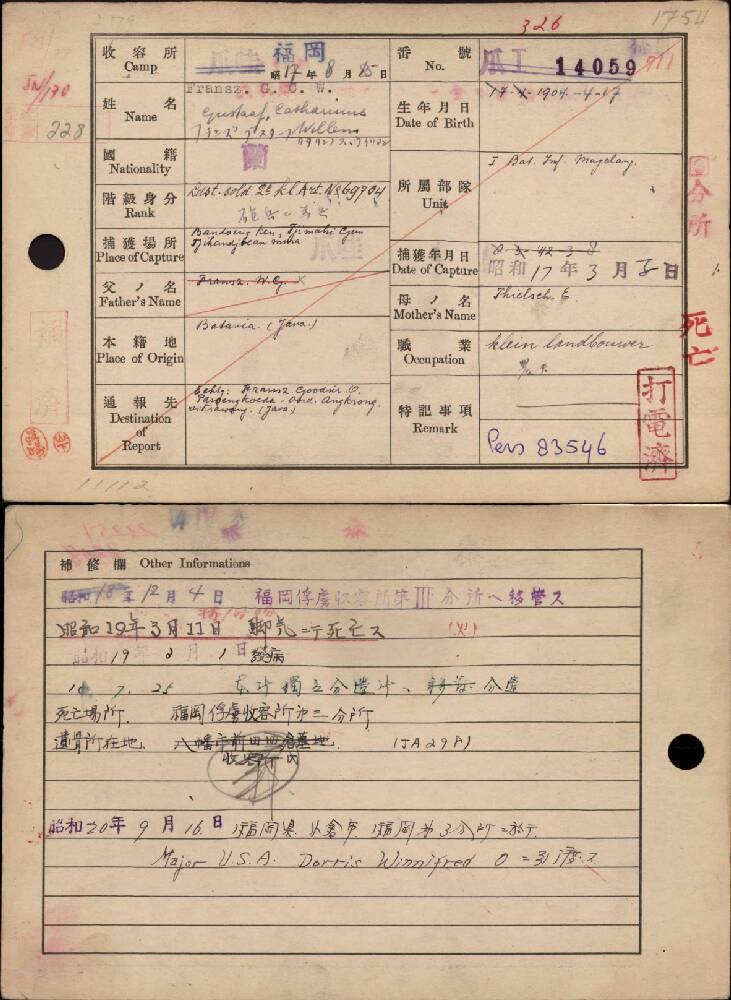 326
1754
228
收容所
Camp
福岡
昭17年8月25日
番號
No.
爪I 14059
姓名
Name
Fransz. G. C. W.
Gustaaf, Catharinus
Willem
生年月日
Date of Birth
1904.-4-17
國籍
Nationality
蘭
階級身分
Rank
Ldst. sold 2e kl Art. No 69704
所屬部隊
Unit
I Bat. Inf. Magelang.
捕獲場所
Place of Capture
捕獲年月日
Date of Capture
昭和17年3月8日
父ノ名
Father's Name
Fransz. W.G. X
母ノ名
Mother's Name
Thielsch. E.
本籍地
Place of Origin
Batavia. (Java.)
職業
Occupation
klein landbouwer
通報先
Destination of Report
Echtg: Fransz. Goodsir. C.
Paroengkoeda. Ond. Angkrong.
(Java)
特記事項
Remark
Pers 83546
分所
死亡
打電濟
11112
補修欄 Other Informations
昭和18年12月4日 福岡俘虜収容所第III分所ヘ移管ス
昭和19年3月11日 脚気ニテ死亡ス
昭和19年2月1日 発病
死亡場所. 福岡俘虜收容所第三分所
遺骨所在地. 八幡市前田
(JA29A)
昭和20年9月16日 福岡県小倉市福岡第3分所ニ於テ
Major U.S.A. Dorris Winnifred O ニ引渡ス